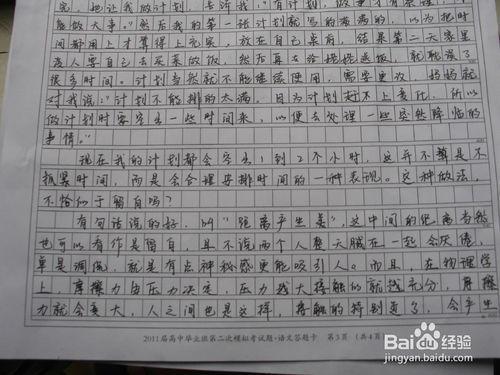 完，也让我做计划，告诉我："有计划，做事才有条理，才
能做大事。"然后我的第一张计划就写的满满的，以为把时
间都用上才算得上充实，放在自己桌前，结果第二天家里
没人要自己去买菜做饭，然后再去给姥姥送饭，就耽误了
很多时间。计划当然就不能继续使用，需要更改，妈妈就
对我说："计划不能排的太满，因为计划赶不上变化，所以
做计划时要空出一些时间来，以便去处理一些突然降临的
事情。"
现在我的计划都会空出1到2个小时，这并不算是不
抓紧时间，而是会合理安排时间的一种表现。这种做法，
不恰似于留白吗？
有句话说的好，叫"距离产生美"，这中间的距离当然
也可以看作是留白，且不说两个人整天腻在一起会厌倦，
单是调侃，就是有点神秘感更能吸引人。而且，在物理学
上，摩擦力由压力决定，压力越大接触的就越充分，摩擦
力就会变大，人之间也是这样，接触的特别近了，会产生
2011届高中毕业班第二次模拟考试题·语文答题卡 第3页 (共4页)
Baidu经验
jingyan.baidu.com